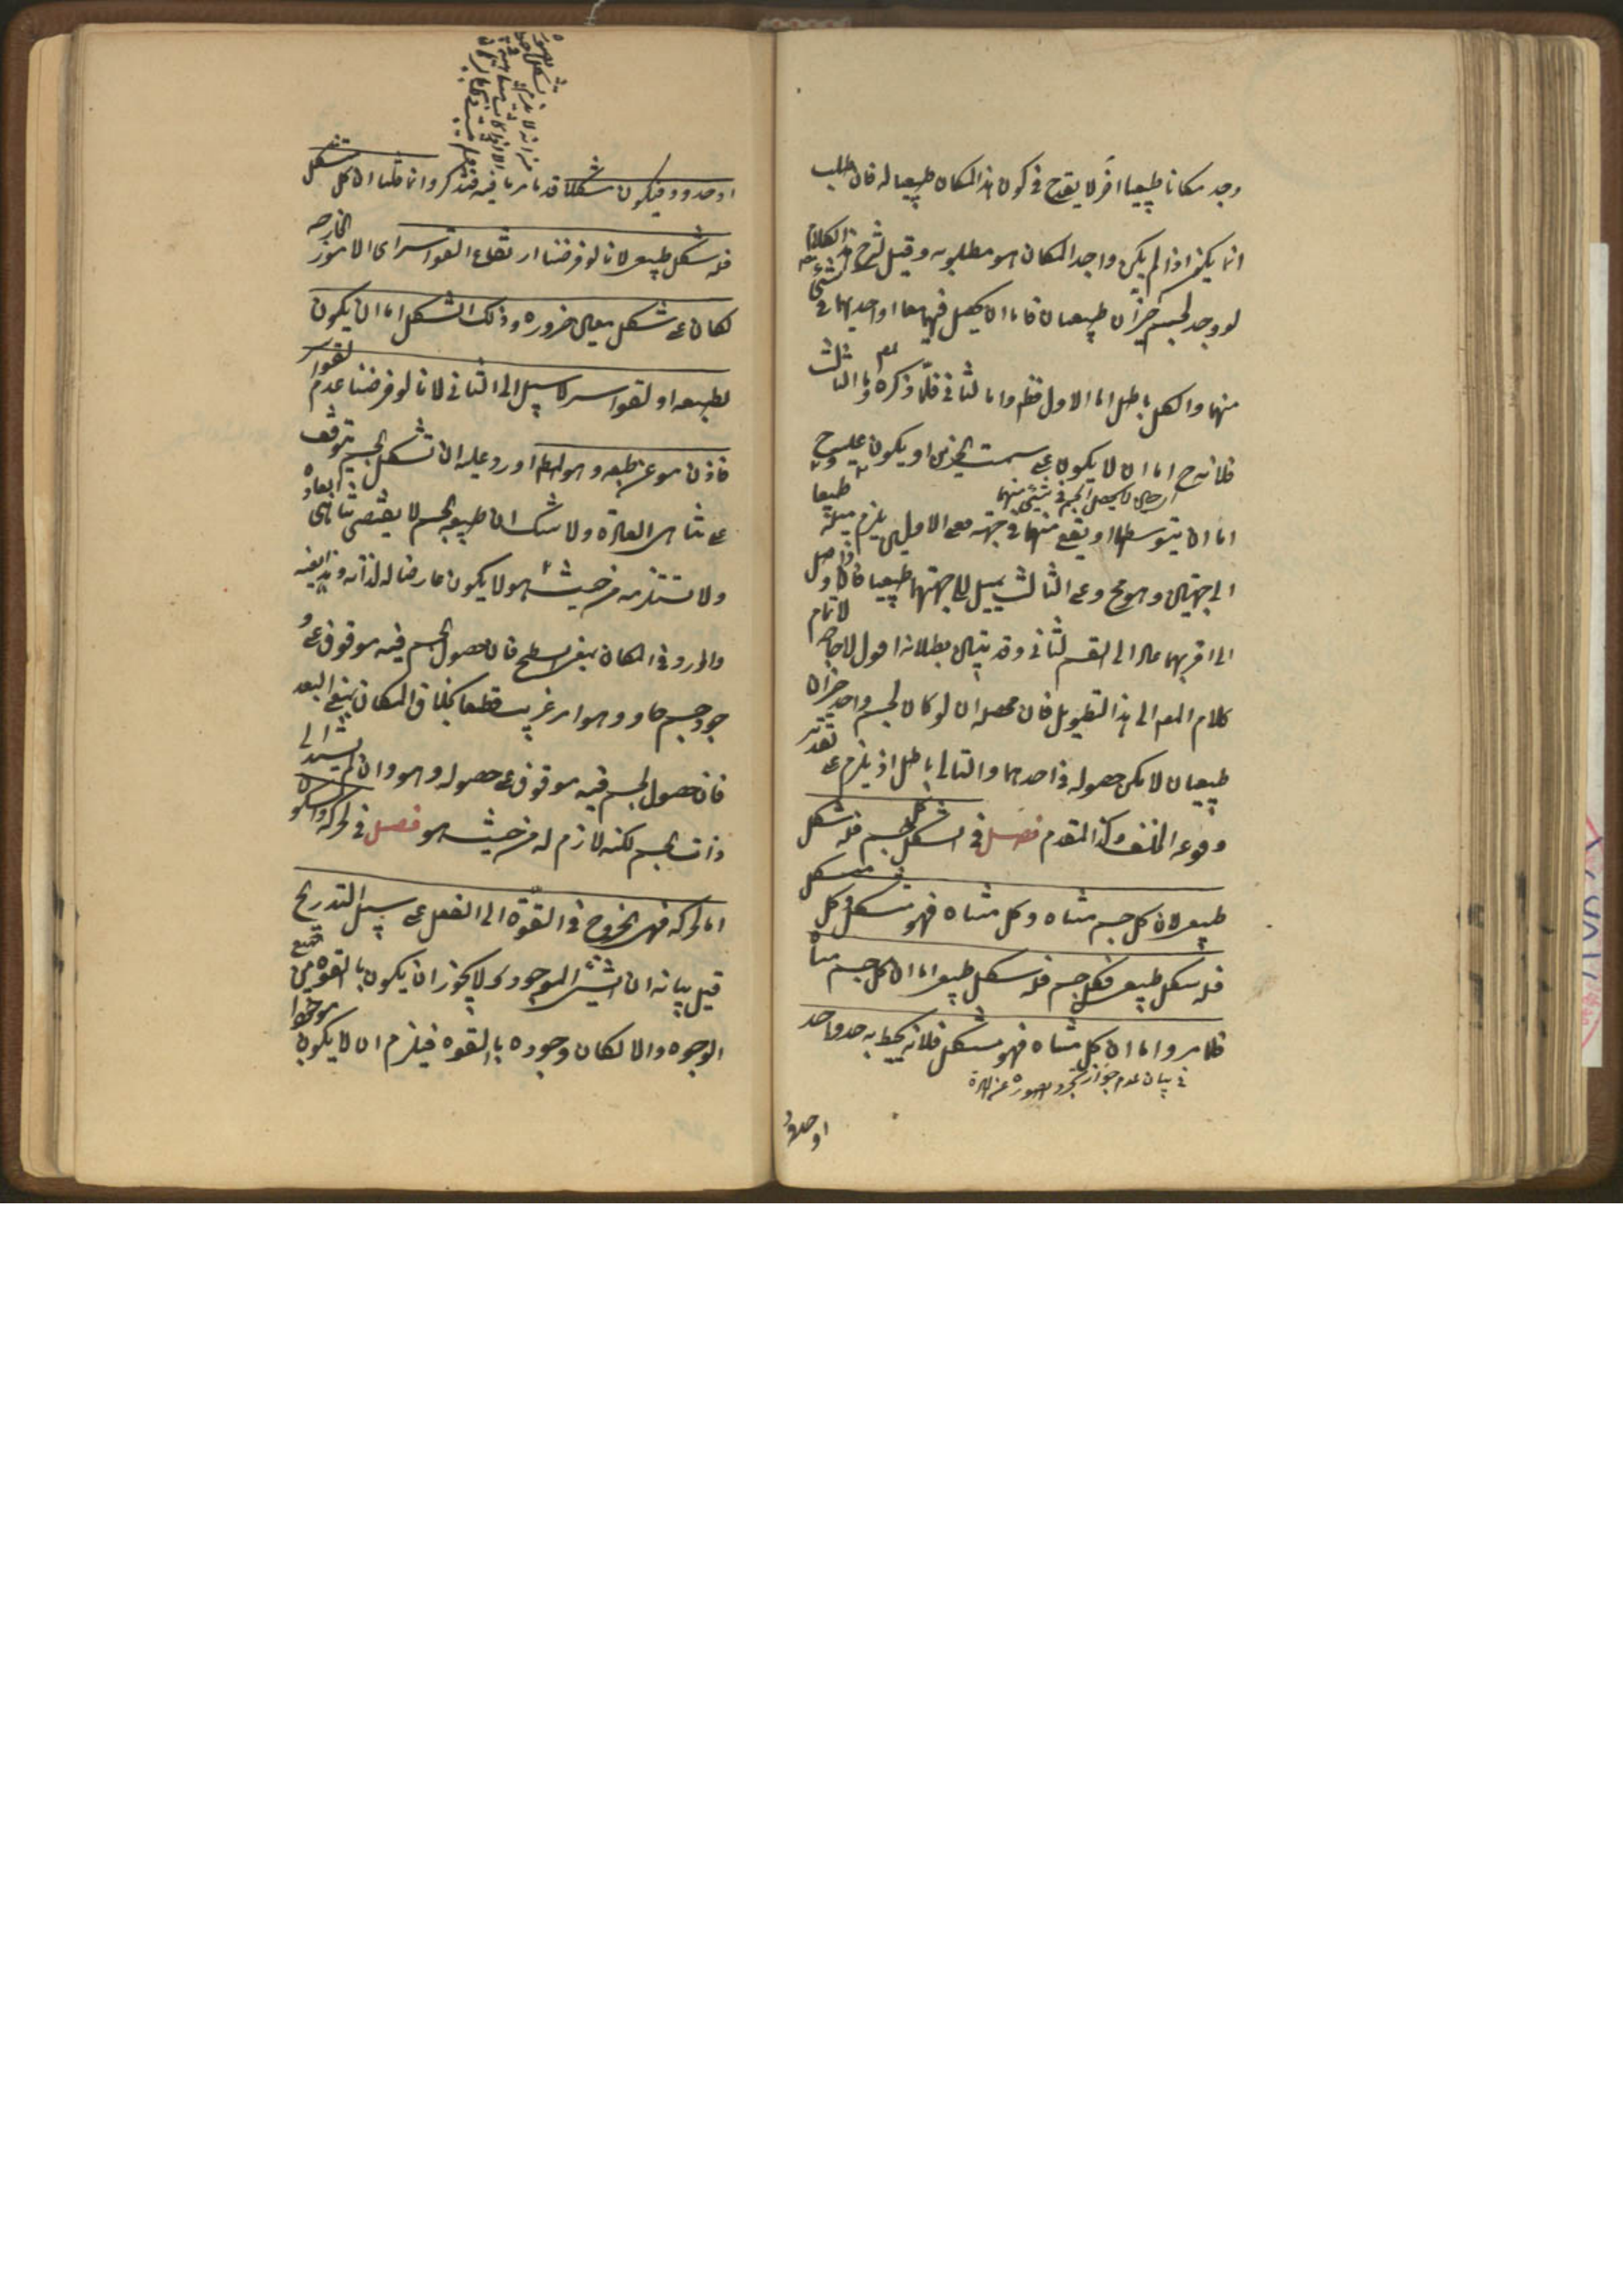 وجد مكانا طبيعيا اخر لا يقدح في كون هذا المكان طبيعيا له فان طلب
انما يكون اذا لم يكن واجد المكان هو مطلوبه وقيل لشرح هذا الكلام
لو وجد لجسم حيزان طبيعيان فاما ان يحصل فيهما معا او احديهما او لا في شئ
منهما والكل باطل اما الاول فظ واما الثاني فلما ذكره واما الثالث
فلانه ح اما ان لا يكون على سمت الحيزين او يكون عليه وح
اي حين لا يحصل الجسم في شئ منهما
اما ان يتوسطهما او يقع منهما في جهة فعلى الاولين يلزم ميله طبعا
الى جهتين وهو مح وعلى الثالث يميل الى جهتهما طبعا فاذا وصل
الى اقربهما عاد الى القسم الثاني وقد تبين بطلانه اقول لا حاجة لاتمام
كلام المصـ الى هذا التطويل فان محصله ان لو كان لجسم واحد حيزان
طبيعيان لامكن حصوله في احدهما والتالي باطل اذ يلزم على تقدير
وقوعه الخلف وكذا المقدم فصل في الشكل كل جسم فله شكل
طبيعي لان كل جسم متناه وكل متناه فهو متشكل وكل متشكل
فله شكل طبيعي فكل جسم فله شكل طبيعي اما ان كل جسم متناه
فلما مر واما ان كل متناه فهو متشكل فلانه يحيط به حد واحد
في بيان عدم جواز تجرد الصورة عن المادة
او حدود
او حدود فيكون متشكلا قد مر ما فيه فتذكر وانما قلنا ان كل متشكل
فله شكل طبيعي لانا لو فرضنا ارتفاع القواسر اى الامور الخارجه
لكان على شكل معين ضرورة وذلك الشكل اما ان يكون
لطبعه او لقواسر لا سبيل الى الثاني لانا لو فرضنا عدم القواسر
فاذن هو عن طبعه وهو المط اورد عليه ان تشكل الجسم يتوقف
على تناهي ابعاده ولا شك ان طبيعة الجسم لا يقتضي تناهي
ولا تستلزمه من حيث هو لا يكون عارضا له لذاته وهذا بعينه
وارد في المكان بمعنى السطح فان حصول الجسم فيه موقوف على و
جود جسم حاو وهو امر غريب قطعا بخلاف المكان بمعنى البعد
فان حصول الجسم فيه موقوف على حصوله وهو وان لم يستند الى
ذات الجسم لكنه لازم له من حيث هو فصل في الحركة والسكون
اما الحركه فهي الخروج من القوة الى الفعل على سبيل التدريج
قيل بيانه ان الشئ الموجود لا يجوز ان يكون بالقوه من جميع
الوجوه والا لكان وجوده بالقوه فيلزم ان لا يكون موجودا